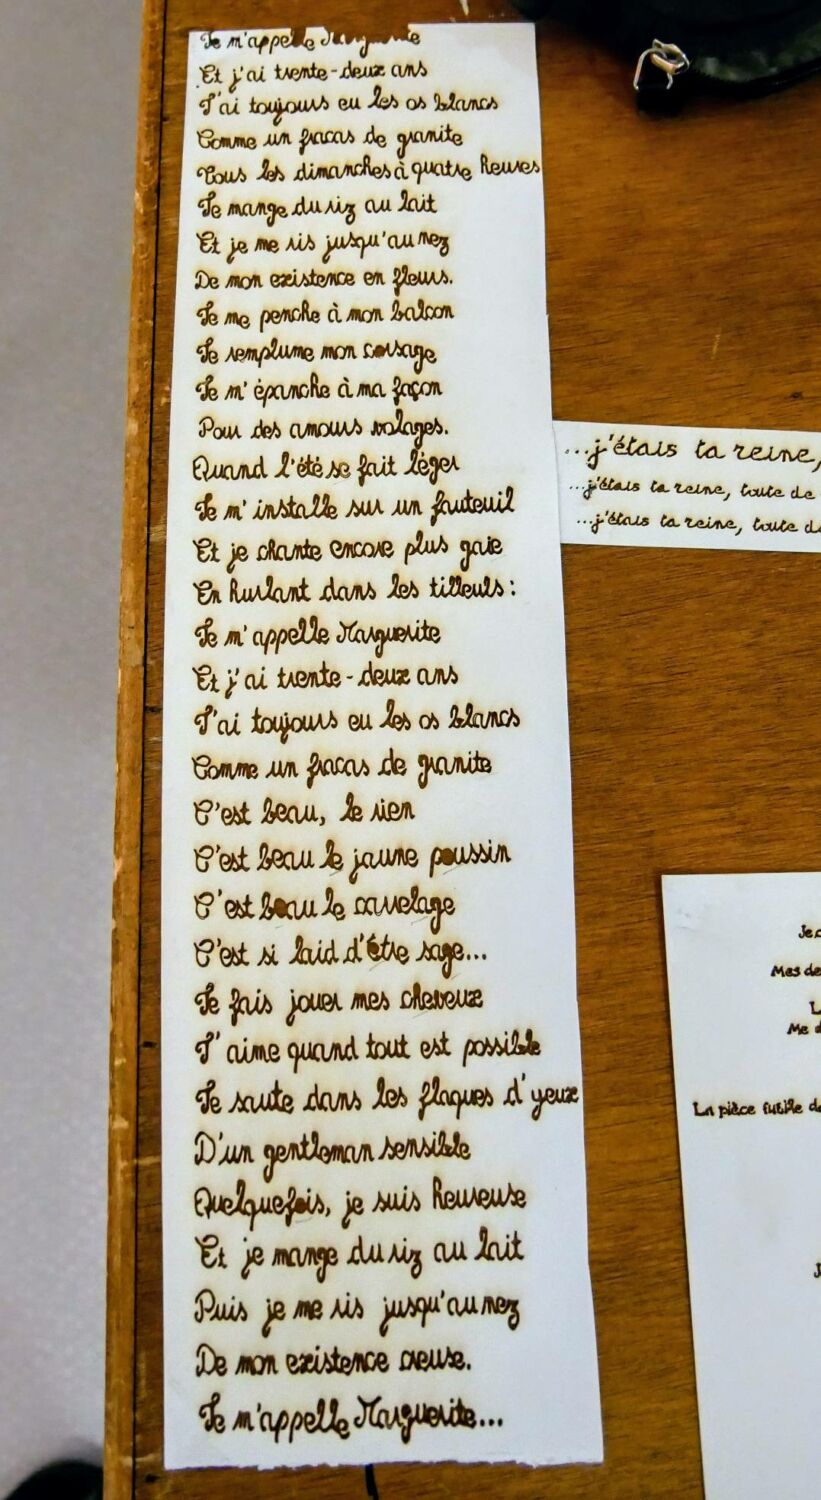 Je m'appelle Marguerite
Et j'ai trente-deux ans
J'ai toujours eu les os blancs
Comme un fracas de granite
Tous les dimanches à quatre heures
Je mange du riz au lait
Et je me ris jusqu'au nez
De mon existence en fleurs.
Je me penche à mon balcon
Je remplume mon corsage
Je m'épanche à ma façon
Pour des amours volages.
Quand l'été se fait léger
Je m'installe sur un fauteuil
Et je chante encore plus gaie
En hurlant dans les tilleuls :
Je m'appelle Marguerite
Et j'ai trente-deux ans
J'ai toujours eu les os blancs
Comme un fracas de granite
C'est beau, le rien
C'est beau le jaune poussin
C'est beau le carrelage
C'est si laid d'être sage...
Je fais jouer mes cheveux
J'aime quand tout est possible
Je saute dans les flaques d'yeux
D'un gentleman sensible
Quelquefois, je suis heureuse
Et je mange du riz au lait
Puis je me ris jusqu'au nez
De mon existence creuse.
Je m'appelle Marguerite...
...j'étais ta reine,
...j'étais ta reine, toute de
...j'étais ta reine, toute
Mes
Me
La pièce futile